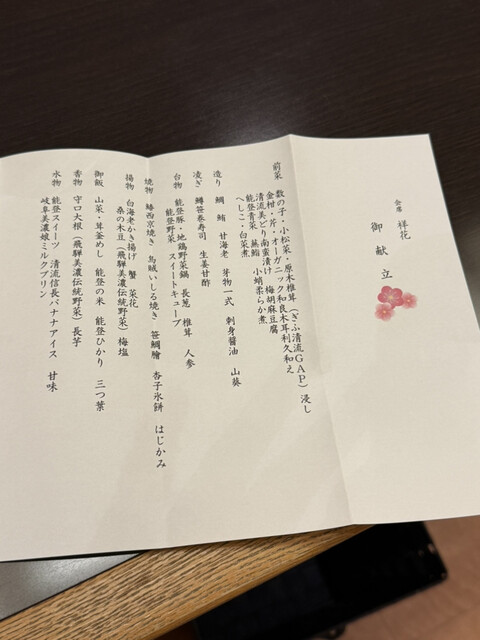 会席 祥花
御献立
前菜 数の子・小松菜・原木椎茸(ぎふ清流GAP)浸し
金柑・芹・オーガニック和良木耳利久和え
清流美どり南蛮漬け 梅胡麻豆腐
能登青菜 蒸鮑 小蛸柔らか煮
へしこ・白菜煮
造り 鯛 鮪 甘海老 芽物一式 刺身醤油 山葵
凌ぎ 鱒笹巻寿司 生姜甘酢
台物 能登豚・地鶏野菜鍋 長葱 椎茸 人参
能登野菜 スイートキューブ
焼物 鰆西京焼き 烏賊いしる焼き 笹鯛膾 杏子氷餅 はじかみ
揚物 白海老かき揚げ 蟹 菜花
桑の木豆(飛騨美濃伝統野菜)梅塩
御飯 山菜・茸釜めし 能登の米 能登ひかり 三つ葉
香物 守口大根(飛騨美濃伝統野菜)長芋
水物 能登スイーツ 清流信長バナナアイス 甘味
岐阜美濃娘ミルクプリン